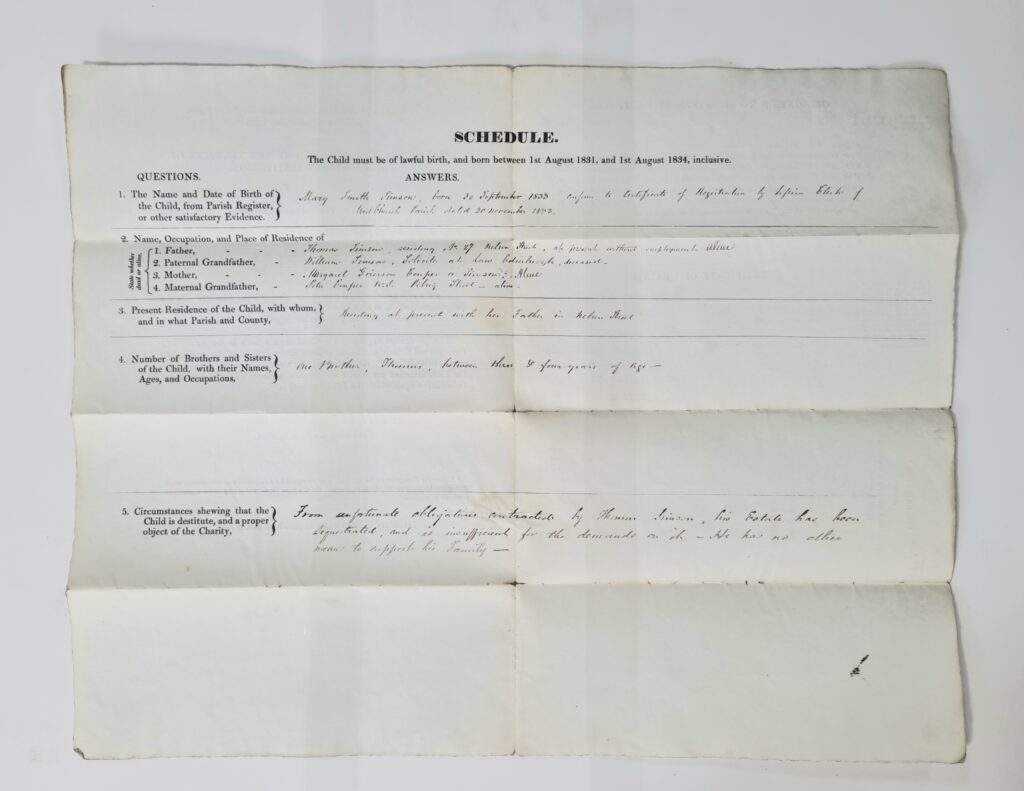 SCHEDULE.
The Child must be of lawful birth, and born between 1st August 1831, and 1st August 1834, inclusive.
QUESTIONS. ANSWERS.
1. The Name and Date of Birth of the Child, from Parish Register, or other satisfactory Evidence.
Mary Smith Simson, born 30 September 1833 conform to Certificate of Registration by Session Clerk of
West Church Parish dated 20 November 1833.
2. Name, Occupation, and Place of Residence of
State whether dead or alive.
1. Father, - - Thomas Simson, residing No 27 Nelson Street, at present without employment Alive
2. Paternal Grandfather, - William Simson, Solicitor at Law Edinburgh, deceased.
3. Mother, - - - Margaret Grierson Cowper or Simson; Alive
4. Maternal Grandfather, - Cowper Pilrig Street - alive.
3. Present Residence of the Child, with whom, and in what Parish and County,
Residing at present with her Father in Nelson Street
4. Number of Brothers and Sisters of the Child, with their Names, Ages, and Occupations,
one Brother, Thomas, between three & four years of age —
5. Circumstances shewing that the Child is destitute, and a proper object of the Charity,
From unfortunate obligations contracted by Thomas Simson, his Estate has been
Sequestrated, and is insufficient for the demands on it — He has no other
means to support his Family —